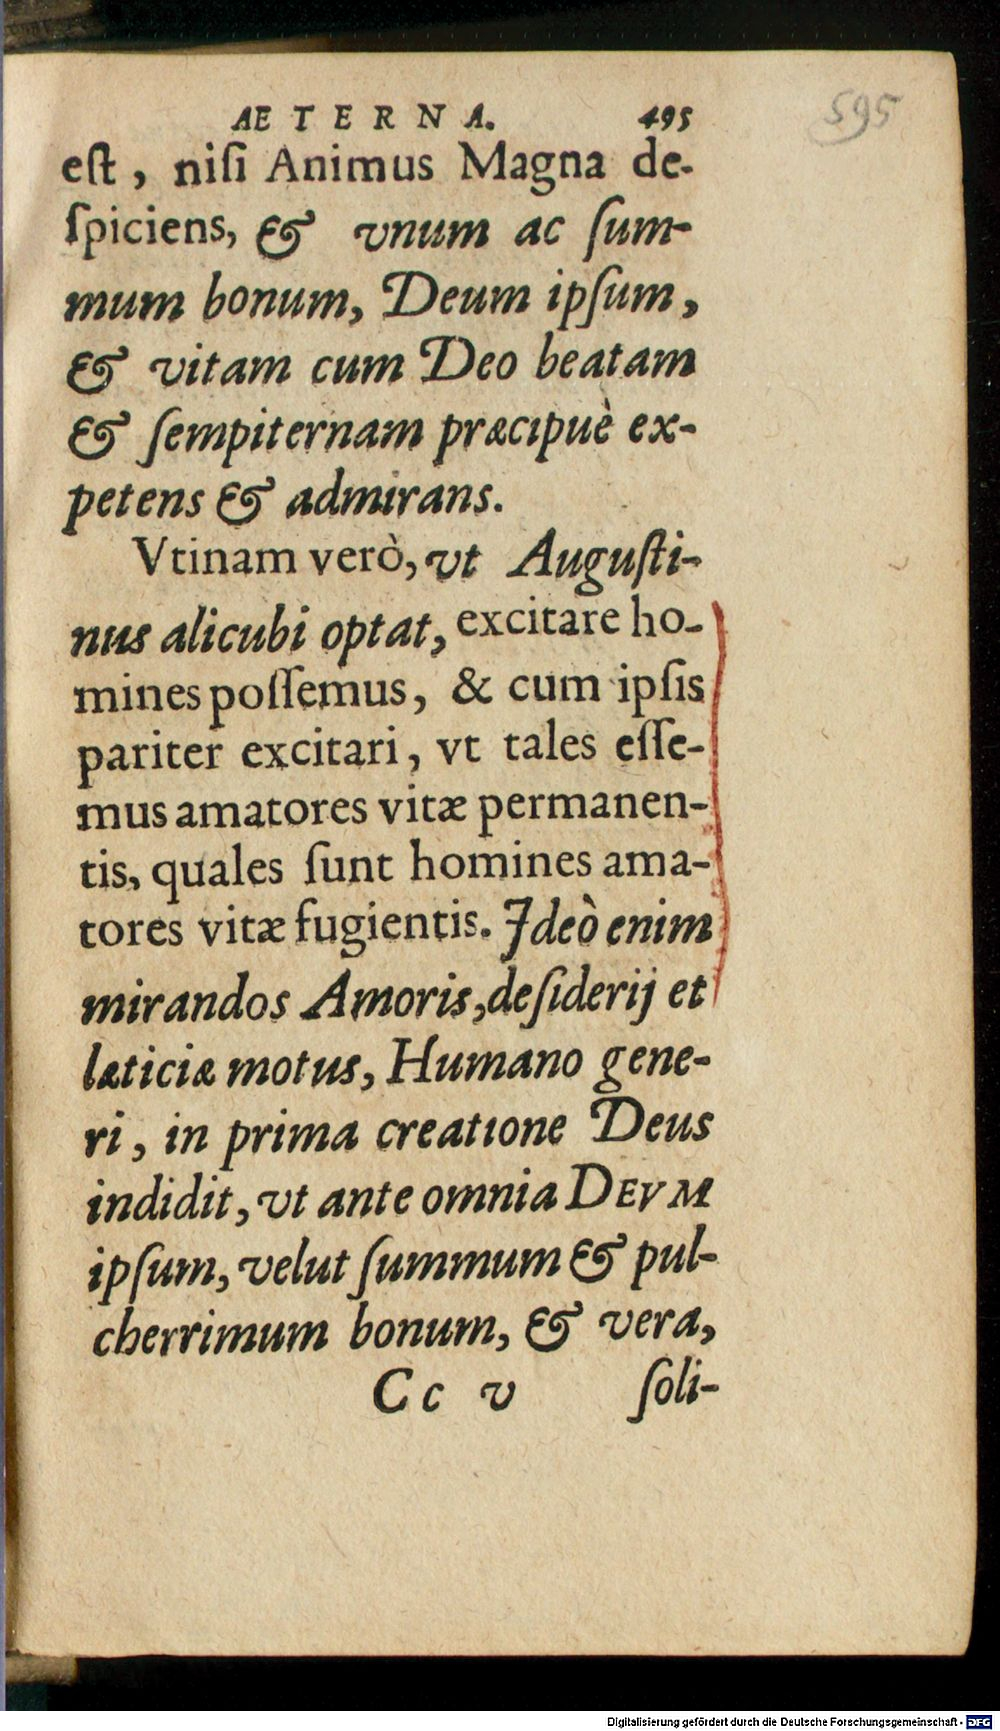 AETERNA. 495
595
est, nisi Animus Magna de-
spiciens, & vnum ac sum-
mum bonum, Deum ipsum,
& vitam cum Deo beatam
& sempiternam præcipuè ex-
petens & admirans.
Vtinam verò, vt Augusti-
nus alicubi optat, excitare ho-
mines possemus, & cum ipsis
pariter excitari, vt tales esse-
mus amatores vitæ permanen-
tis, quales sunt homines ama-
tores vitæ fugientis. Ideò enim
mirandos Amoris, desiderij et
læticiæ motus, Humano gene-
ri, in prima creatione Deus
indidit, vt ante omnia DEVM
ipsum, velut summum & pul-
cherrimum bonum, & vera,
Cc v soli-
Digitalisierung gefördert durch die Deutsche Forschungsgemeinschaft - DFG